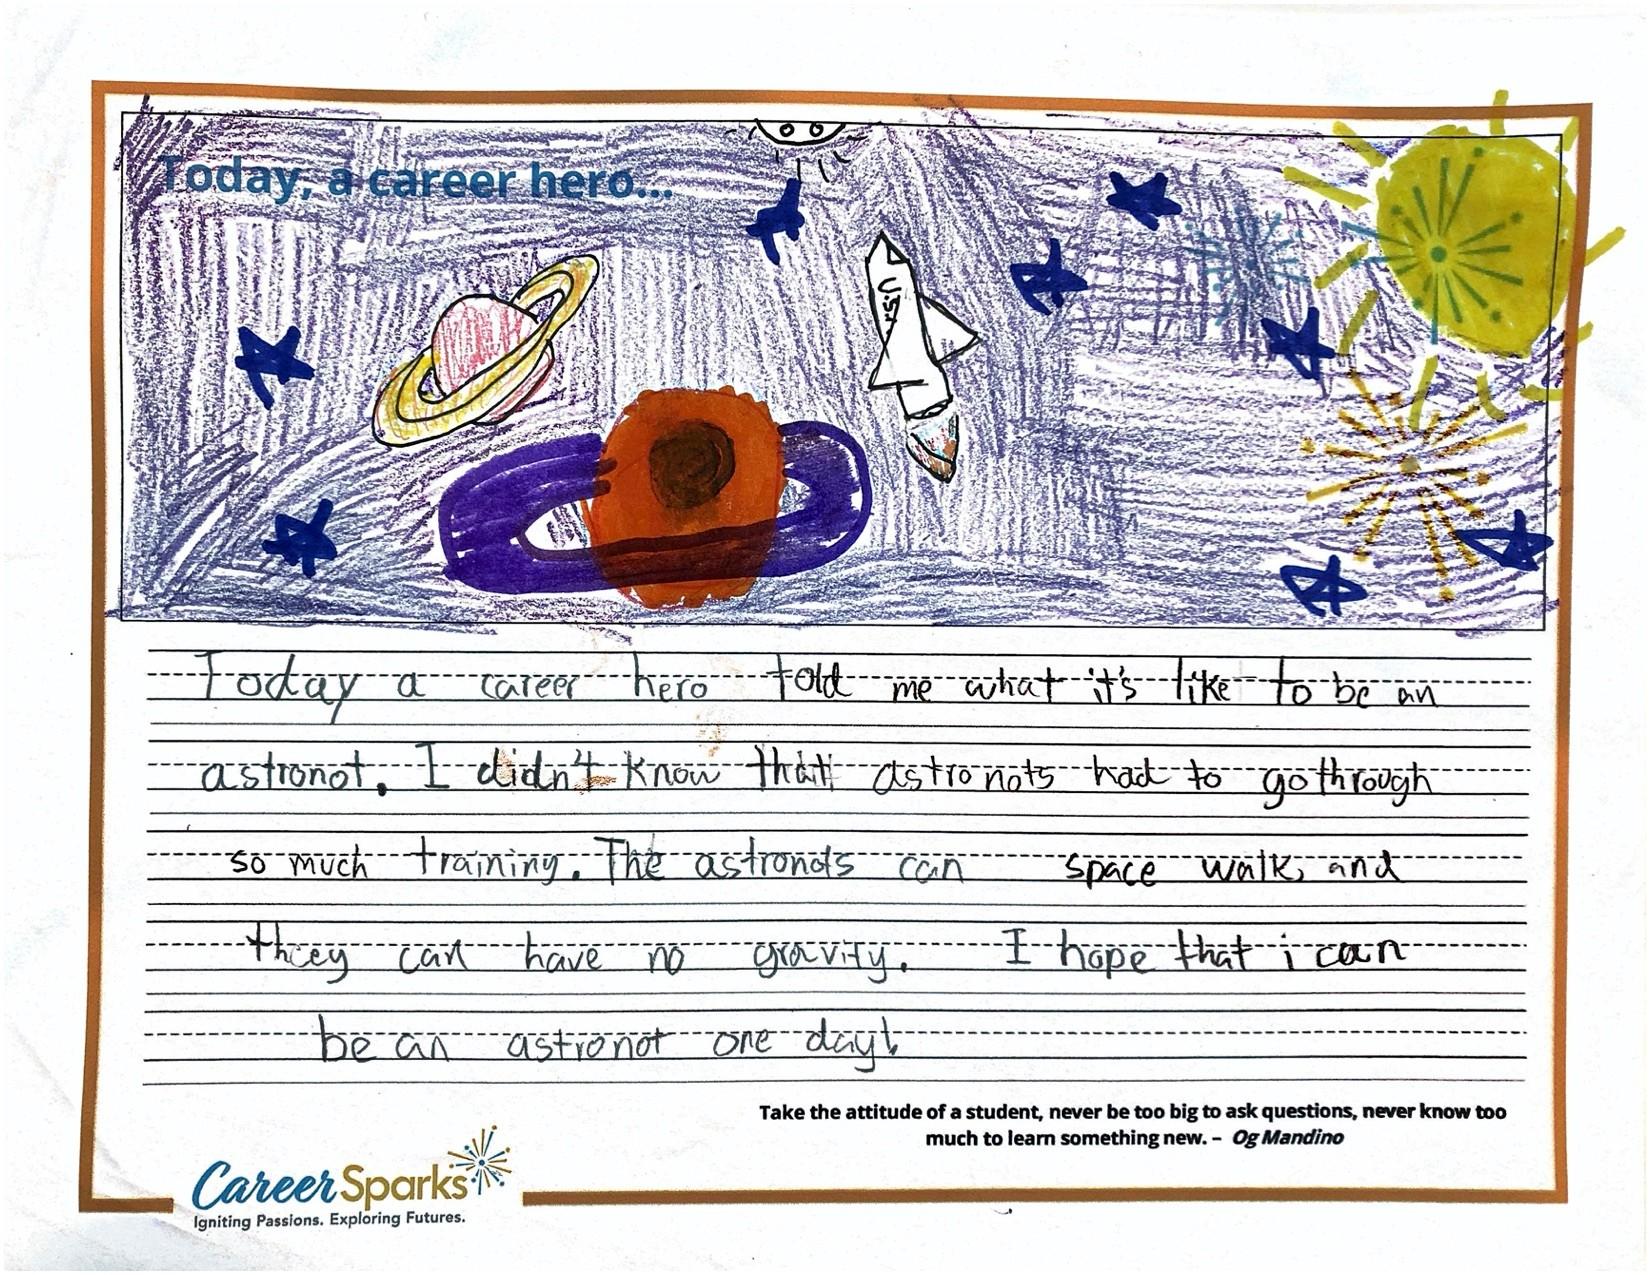 Today, a career hero...
Today a career hero told me what it's like to be an
astronot. I didn't know that astronots had to go through
so much training. The astronots can space walk, and
they can have no gravity. I hope that i can
be an astronot one day!
Take the attitude of a student, never be too big to ask questions, never know too
much to learn something new. – Og Mandino
CareerSparks
Igniting Passions. Exploring Futures.